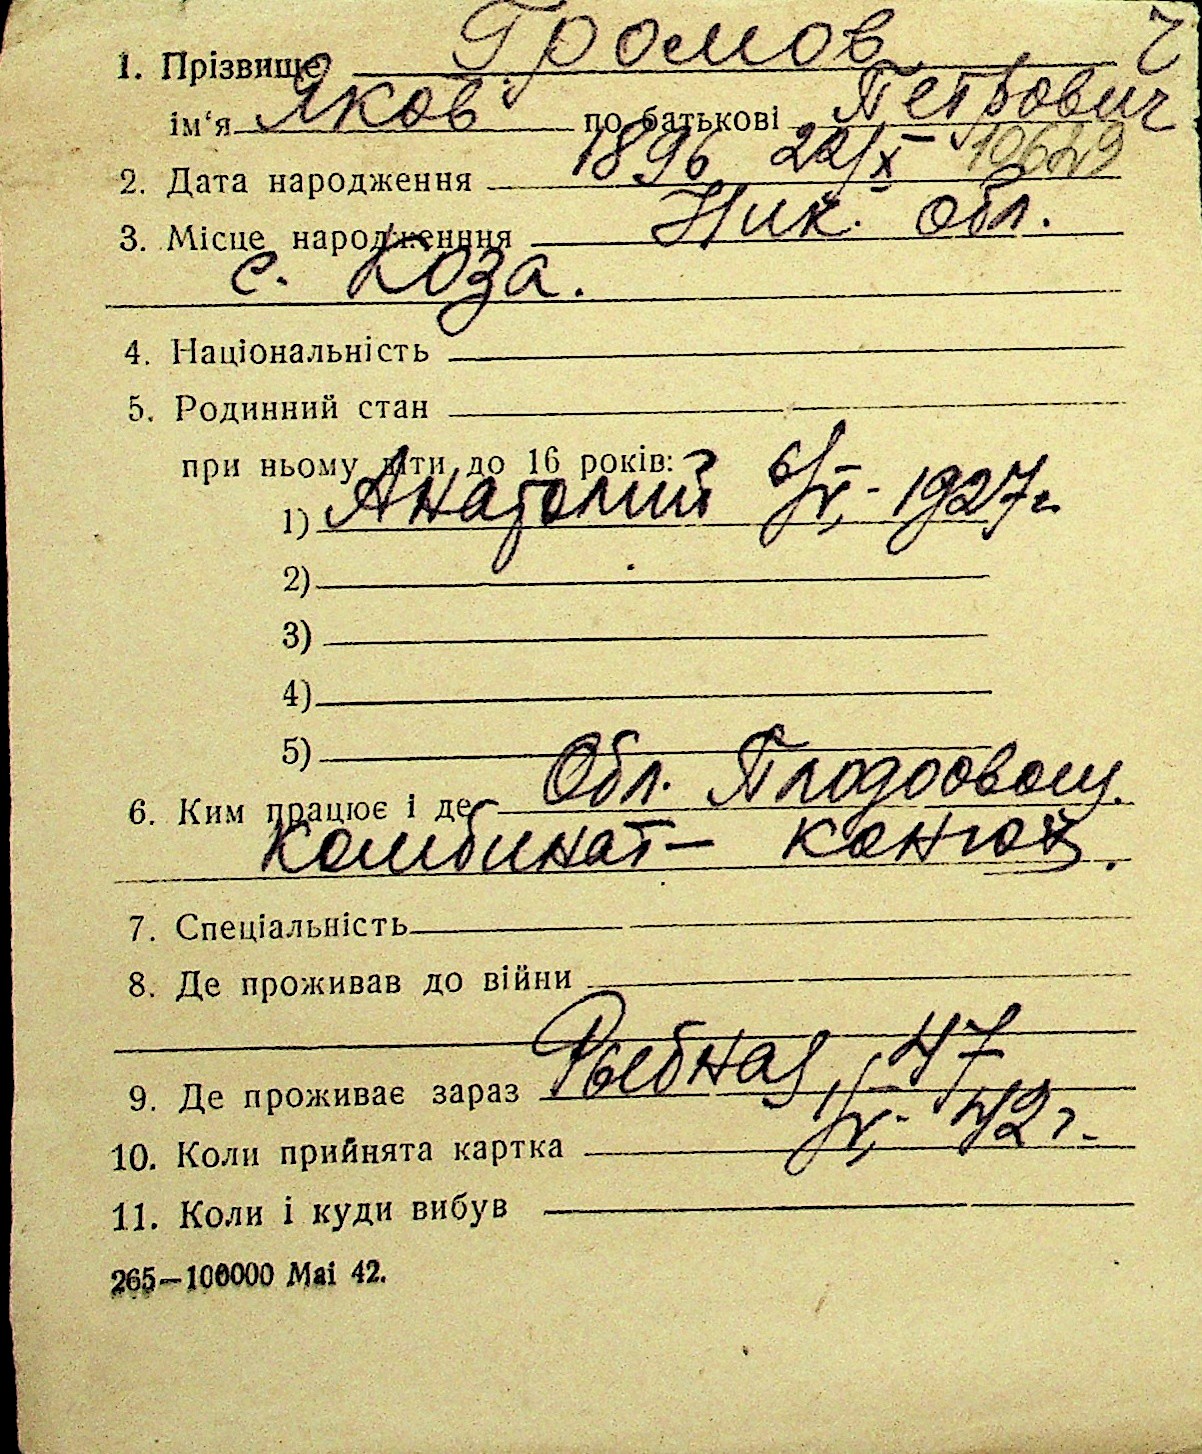 1. Прізвище Громов Ч
ім‘я Яков по батькові Петрович
2. Дата народження 1896 22/X 10649
3. Місце народженння Ник. обл.
с. Коза.
4. Національність
5. Родинний стан
при ньому діти до 16 років:
1) Анатолий 6/V, - 1927 г.
2)
3)
4)
5)
6. Ким працює і де Обл. Плодоовощ.
Комбинат — конюх.
7. Спеціальність
8. Де проживав до війни
9. Де проживає зараз Рыбная, 47
10. Коли прийнята картка 1/V, - 42 г.
11. Коли і куди вибув
265—100000 Mai 42.